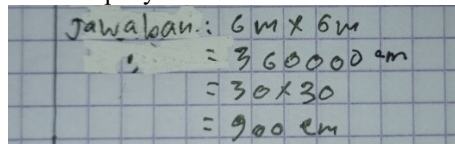 Jawaban : 6 m x 6 m
= 360000 cm
= 30 x 30
= 900 cm